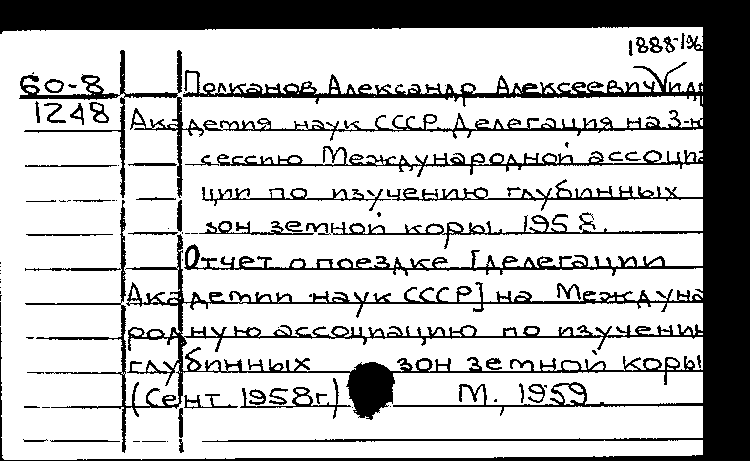 1888-196
60-8 Полканов, Александр Алексеевич и др
1248 Академия наук СССР. Делегация на 3-ю
сессию Международной ассоциа
ции по изучению глубинных
зон земной коры. 1958.
Отчет о поездке [делегации
Академии наук СССР] на Междуна
родную ассоциацию по изучению
глубинных зон земной коры
(Сент. 1958г.) М., 1959.